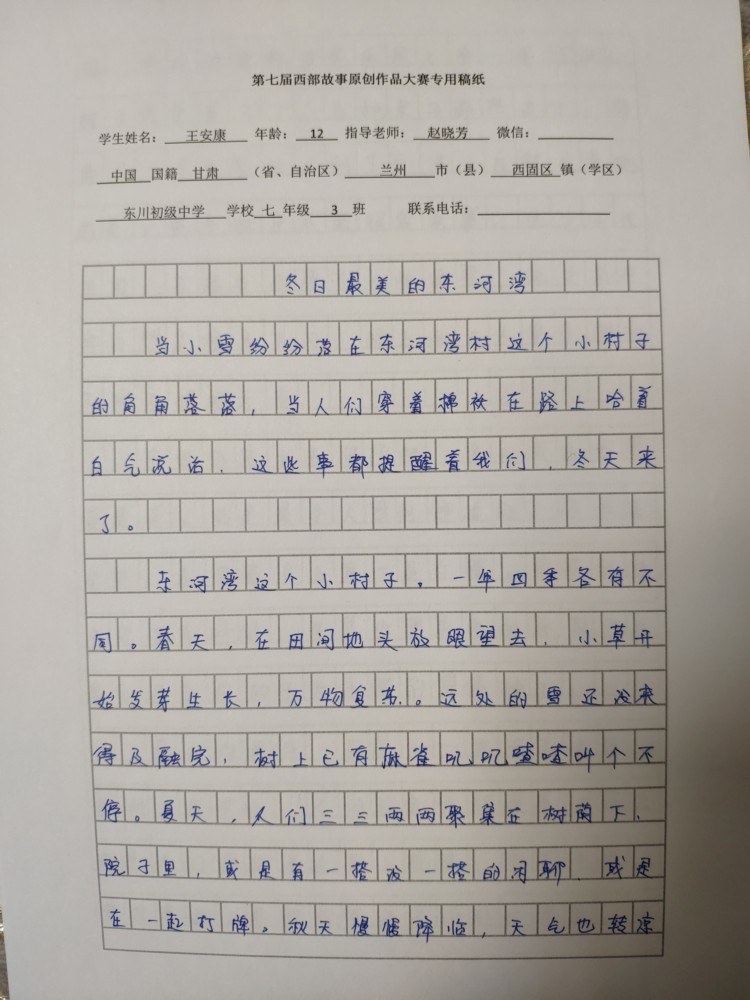 第七届西部故事原创作品大赛专用稿纸
学生姓名：王安康 年龄：12 指导老师：赵晓芳 微信：
中国 国籍 甘肃 （省、自治区） 兰州 市（县） 西固区 镇（学区）
东川初级中学 学校 七 年级 3 班 联系电话：
冬日最美的东河湾
当小雪纷纷落在东河湾村这个小村子
的角角落落，当人们穿着棉袄在路上哈着
白气说话，这些事都提醒着我们，冬天来
了。
东河湾这个小村子，一年四季各有不
同。春天，在田间地头放眼望去，小草开
始发芽生长，万物复苏。远处的雪还没来
得及融完，树上已有麻雀叽叽喳喳叫个不
停。夏天，人们三三两两聚集在树荫下、
院子里，或是有一搭没一搭的闲聊，或是
在一起打牌。秋天慢慢降临，天气也转凉